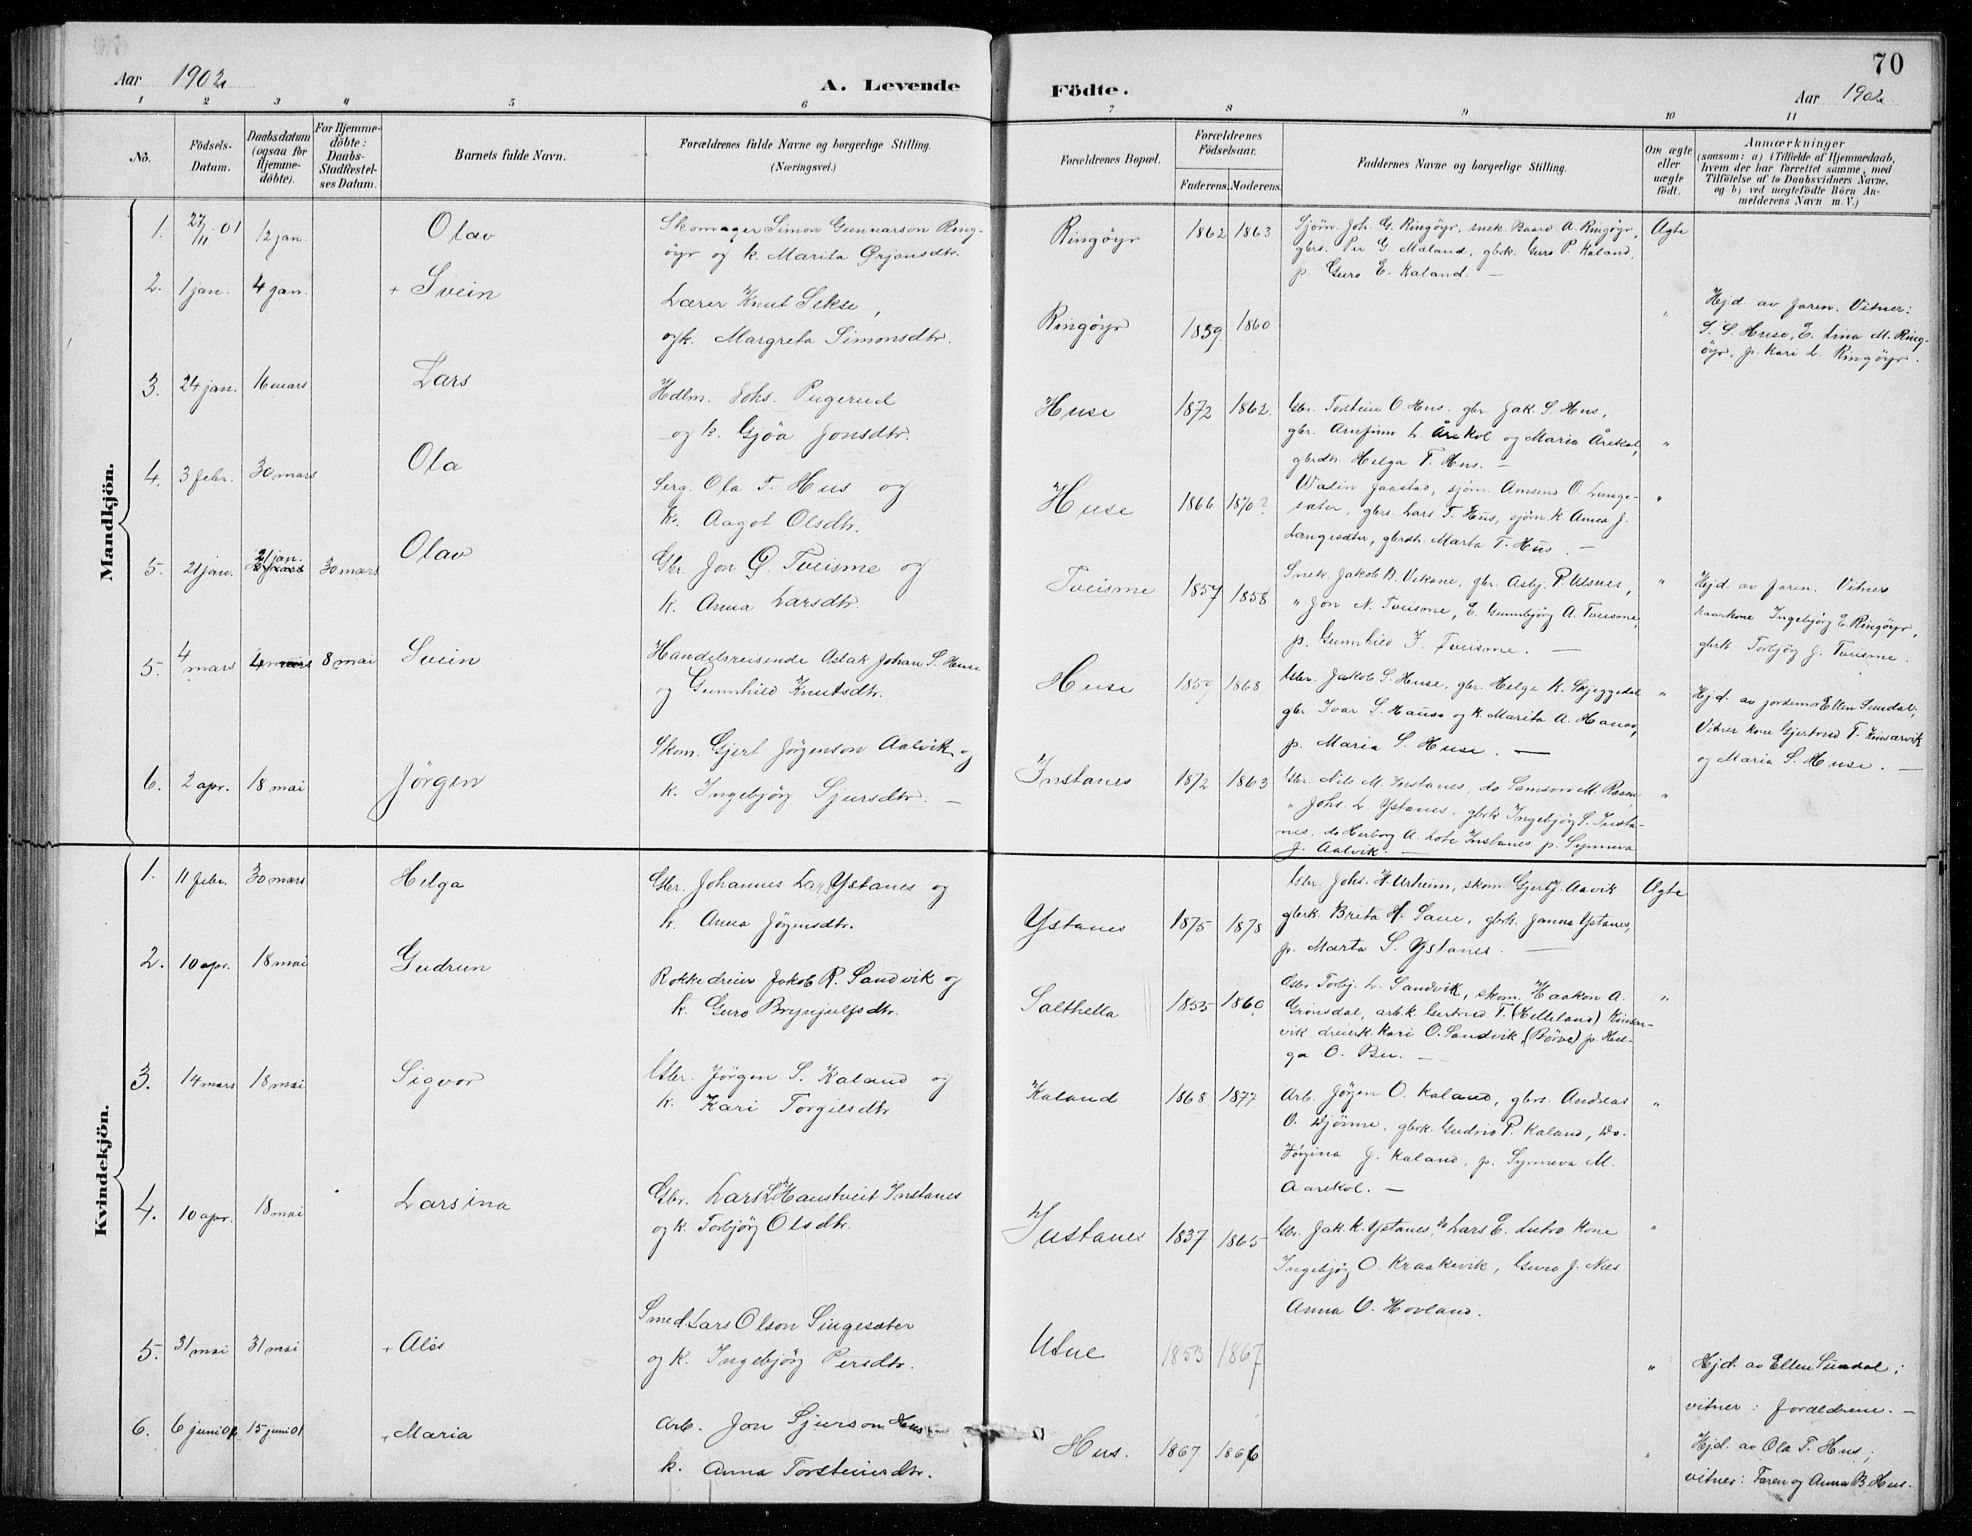 70
Aar 1902
A. Levende
Födte.
Aar 1902
1 2 3 4 5 6 7 8 9 10 11
No.
Födsels-
Datum.
Daabsdatum
(ogsaa for
Hjemme-
döbte).
For Hjemme-
döbte:
Daabs-
Stadfæstel-
ses Datum.
Barnets fulde Navn.
Forældrenes fulde Navne og borgerlige Stilling.
(Næringsvei.)
Forældrenes Bopæl.
Forældrenes
Födselsaar.
Faderens. Moderens.
Faddernes Navne og borgerlige Stilling.
Om ægte
eller
uægte
födt.
Anmærkninger
(saasom: a) i Tilfælde af Hjemmedaab,
hvem der har forrettet samme, med
Tilföielse af to Daabsvidners Navne,
og b) ved uægtefödte Börn An-
melderens Navn m. V.)
Mandkjön.
1. 27/11-01 12 jan. Olav
Skomager Simon Gunnarson Ring-
öyr og k. Marita Örjansdtr.
Ringöyr 1862 1863
Sjöm. Joh. G. Ringöyr, snek. Baard A. Ringöyr,
gbr. Per G Maland, gbrk. Guro P. Kaland,
p. Guro E. Kaland. —
Ægte
2. 1 jan. 4 jan. + Svein
Lærer Knut Sekse,
og k. Margreta Simonsdtr.
Ringöyr 1859 1860 "
Hjd. av faren. Vitner:
S. S. Huse, E. Lina M. Ring-
öyr, p. Kari L. Ringöyr.
3. 24 jan. 16 mars Lars
Hdlm. Johs. Pugerud
og k. Gjöa Jonsdtr.
Huse 1872 1862
Gbr. Torstein O. Hus. gbr. Jak. S. Hus,
gbr. Arnfinn L. Årekol og Maria Årekol,
gbrdtr. Helga T. Hus. — "
4. 3 febr. 30 mars Ola
Serg. Ola T. Hus og
k. Aagot Olsdtr.
Huse 1866 1870?
Jaastad, sjöm. Amund O. Lange-
sæter, gbr. Lars T. Hus, sjöm.k. Anna J.
Langesæter, gbrdtr. Marta T. Hus. — "
5. 21 jan. 21 jan. 30 mars Olav
Gbr. Jon O. Tveisme og
k. Anna Larsdtr.
Tveisme 1857 1858
Snek. Jakob B. Vikane, gbr. Asbj. P. Utsnes,
" Jon N. Tveisme, E. Gunnbjörg A. Tveisme,
p. Gunnhild J. Tveisme. — "
Hjd. av faren. Vitner
kaarkone Ingebjörg E. Ringöyr,
gbrk. Torbjög J. Tveisme.
5. 4 mars 4 mars 8 mai Svein
Handelsreisende Aslak Johan S. Huse
og Gunnhild Knutsdtr.
Huse 1859 1868
Gbr. Jakob S. Huse, gbr. Helge K. Skjeggedal
gbr. Ivar S. Hauso og k. Marita A. Hauso,
p. Maria S. Huse. — "
Hjd. av jordemor Ellen Sundal;
Vitner kone Gjertrud T. Kinsarvik
og Maria S. Huse. —
6. 2 apr. 18 mai Jörgen
Skom. Gjert Jörgenson Aalvik og
k. Ingebjörg Sjursdtr. —
Instanes 1872 1863
Gbr. Nils M. Instanes, do Samson M. Raaen,
" Johs. L. Ystanes, gbrk Ingebjörg S. Insta-
nes. do Herborg A. Lote Instanes p. Synneva
J. Aalvik. — "
Kvindekjön.
1. 11 febr. 30 mars Helga
Gbr. Johannes Lars Ystanes og
k. Anna Jörgensdtr.
Ystanes 1875 1878
Gbr. Johs. H. Urheim, skom. Gjert J. Aavik
gbrk. Brita H. Saue, gbrk. Janna Ystanes,
p. Marta S. Ystanes. —
Ægte
2. 10 apr. 18 mai Gudrun
Rokkedreier Jakob R. Sandvik og
k. Guro Brynjulfsdtr.
Salthella 1855 1860
Gbr Torbj. L. Sandvik, skom. Haakon A.
Grönsdal, arb.k. Gertrud T. (Helleland) Kinsar-
vik. dreierk. Kari O. Sandvik, (Börve) p. Hel-
ga O. Bu. — "
3. 14 mars 18 mai Sigvor
Gbr. Jörgen S. Kaland og
k. Kari Torgilsdtr
Kaland 1868 1877
Arb. Jörgen O. Kaland, gbr. Andreas
O. Djönne, gbrk. Gudrid P. Kaland, Do.
Jörgina J. Kaland, p. Synneva M.
Aarekol. — "
4. 10 apr. 18 mai Larsina
Gbr. Lars L Haustveit Instanes
og k. Torbjörg Olsdtr.
Instanes 1837 1865
Gbr. Jak. K. Ystanes, do Lars E. Lutro Kone
Ingebjörg O. Kraakevik, Guro J. Næs
Anna O. Hovland. "
5. 31 mai 31 mai + Alis
Smed Lars Olson Singesæter
og k. Ingebjörg Persdtr.
Utne 1853 1867 "
Hjd. av Ellen Sundal;
vitner: forældrene. —
6. 6 juni 01 15 juni 01 + Maria
Arb. Jon Sjurson Hus
k. Anna Torsteinsdtr.
Hus. 1867 1866 "
Hjd. av Ola T. Hus;
vitner: Faren og Anna B. Hus.